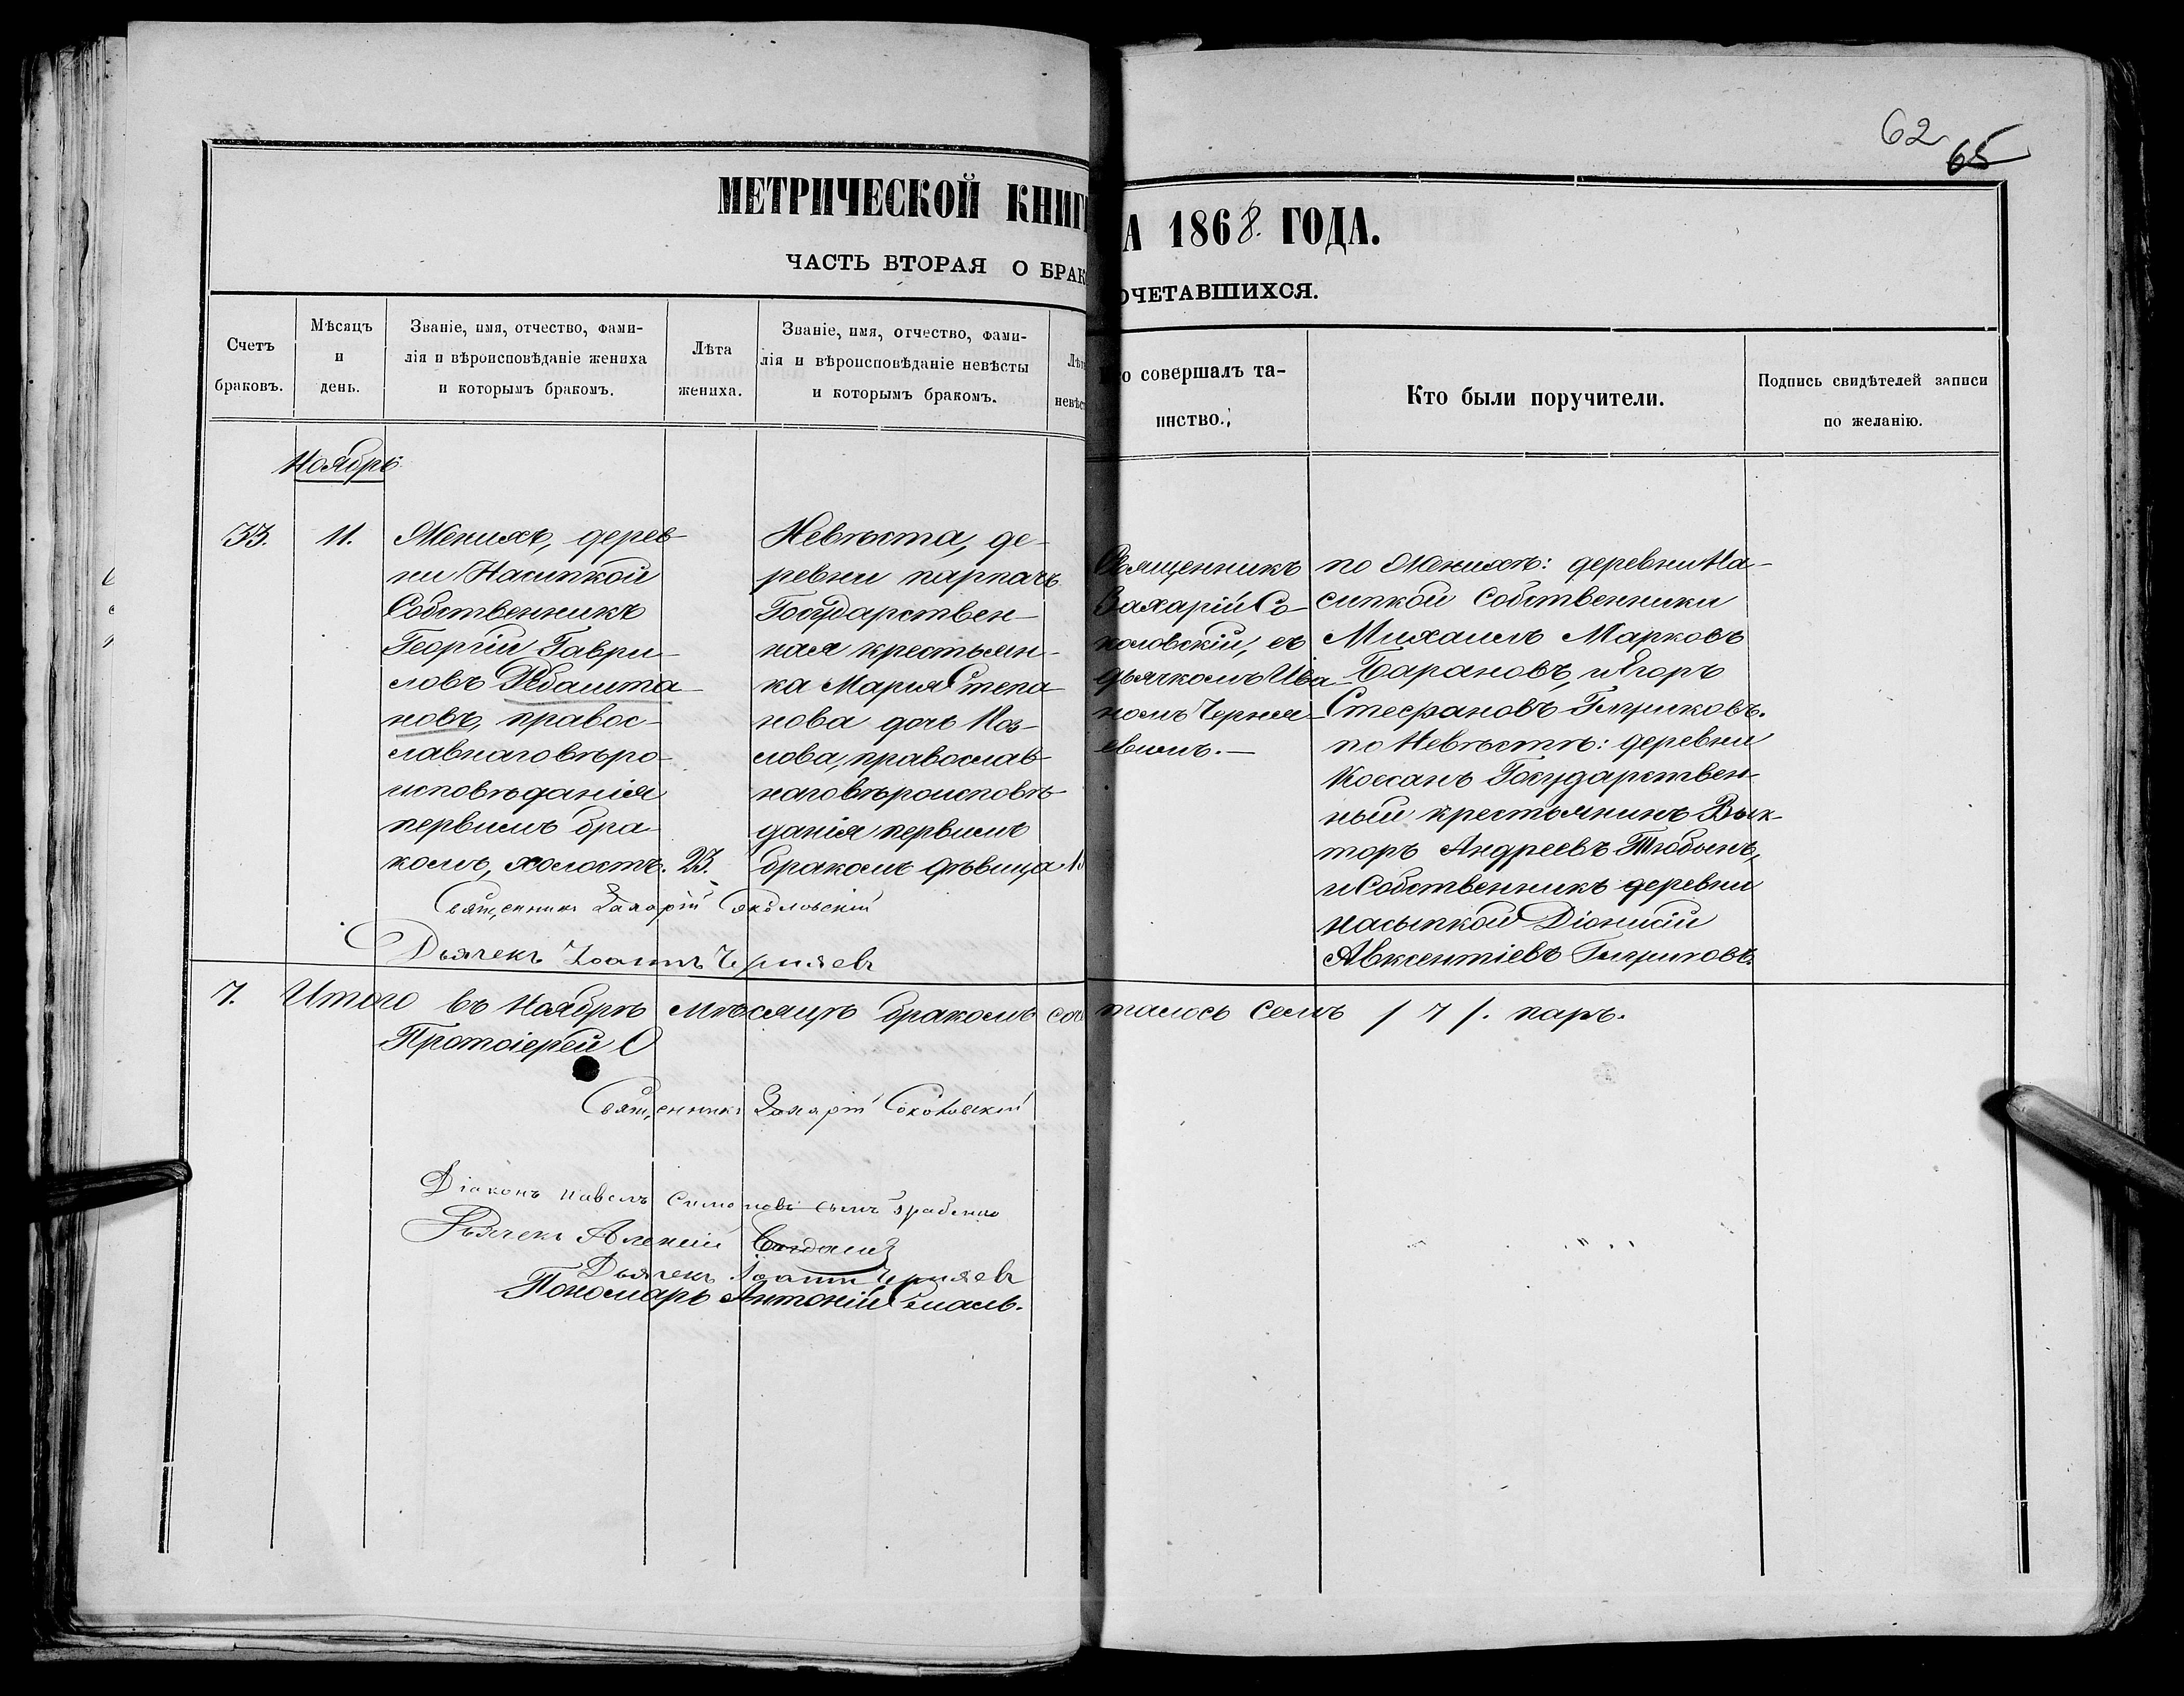 62
65
МЕТРИЧЕСКОЙ КНИГ
А 1868. ГОДА.
ЧАСТЬ ВТОРАЯ О БРАК
ОЧЕТАВШИХСЯ.
Счетъ
браковъ.
Мѣсяцъ
и
день.
Званіе, имя, отчество, фами-
лія и вѣроисповѣданіе жениха
и которымъ бракомъ.
Лѣта
жениха.
Званіе, имя, отчество, фами-
лія и вѣроисповѣданіе невѣсты
и которымъ бракомъ.
Лѣт
невѣс
о совершалъ та-
инство.
Кто были поручители.
Подпись свидѣтелей записи
по желанію.
Ноябрь
33.
11.
Женихъ, дерев-
ни Насипкой
Собственникъ
Георгій Гаври-
ловъ
новъ, правос-
лавнаго вѣро-
исповѣданія
первимъ бра-
комъ, холостъ.
23.
Невѣста, де-
ревни парпачь
Государствен-
ная крестьян-
ка Марія Степа-
нова дочь Коз-
лова, православ-
наго вѣроисповѣ-
данія первимъ
бракомъ дѣвица
Священникъ
Захарій Со-
коловскій, съ
дьячкомъ Ива-
номъ Черня-
евимъ. —
по Женихѣ: деревни На-
сипкой Собственники
Михаилъ Марковъ
Барановъ, и Ягоръ
Стефановъ Гыриковъ.
по Невѣстѣ: деревни
Коссанъ Государствен-
ный крестьянинъ Вык-
торъ Андреевъ
и Собственникъ деревни
Насыпкой Діонисій
Авксентіевъ Гыриковъ.
Священникъ Захарій Соколовскій
Дьячекъ Іоаннъ Черняевъ
7. Итого въ Ноябрѣ мѣсяцѣ бракомъ соч
талось семь / 7 /. паръ.
Протоіерей
Священникъ Захарій Соколовскій
Діаконъ Павелъ Симоновъ сынъ
Дьячекъ Алексій
Дьячекъ Іоаннъ Черняевъ
Пономарь Антоній